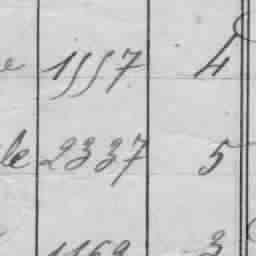 e 1557 4
le 2337 5
1169 3